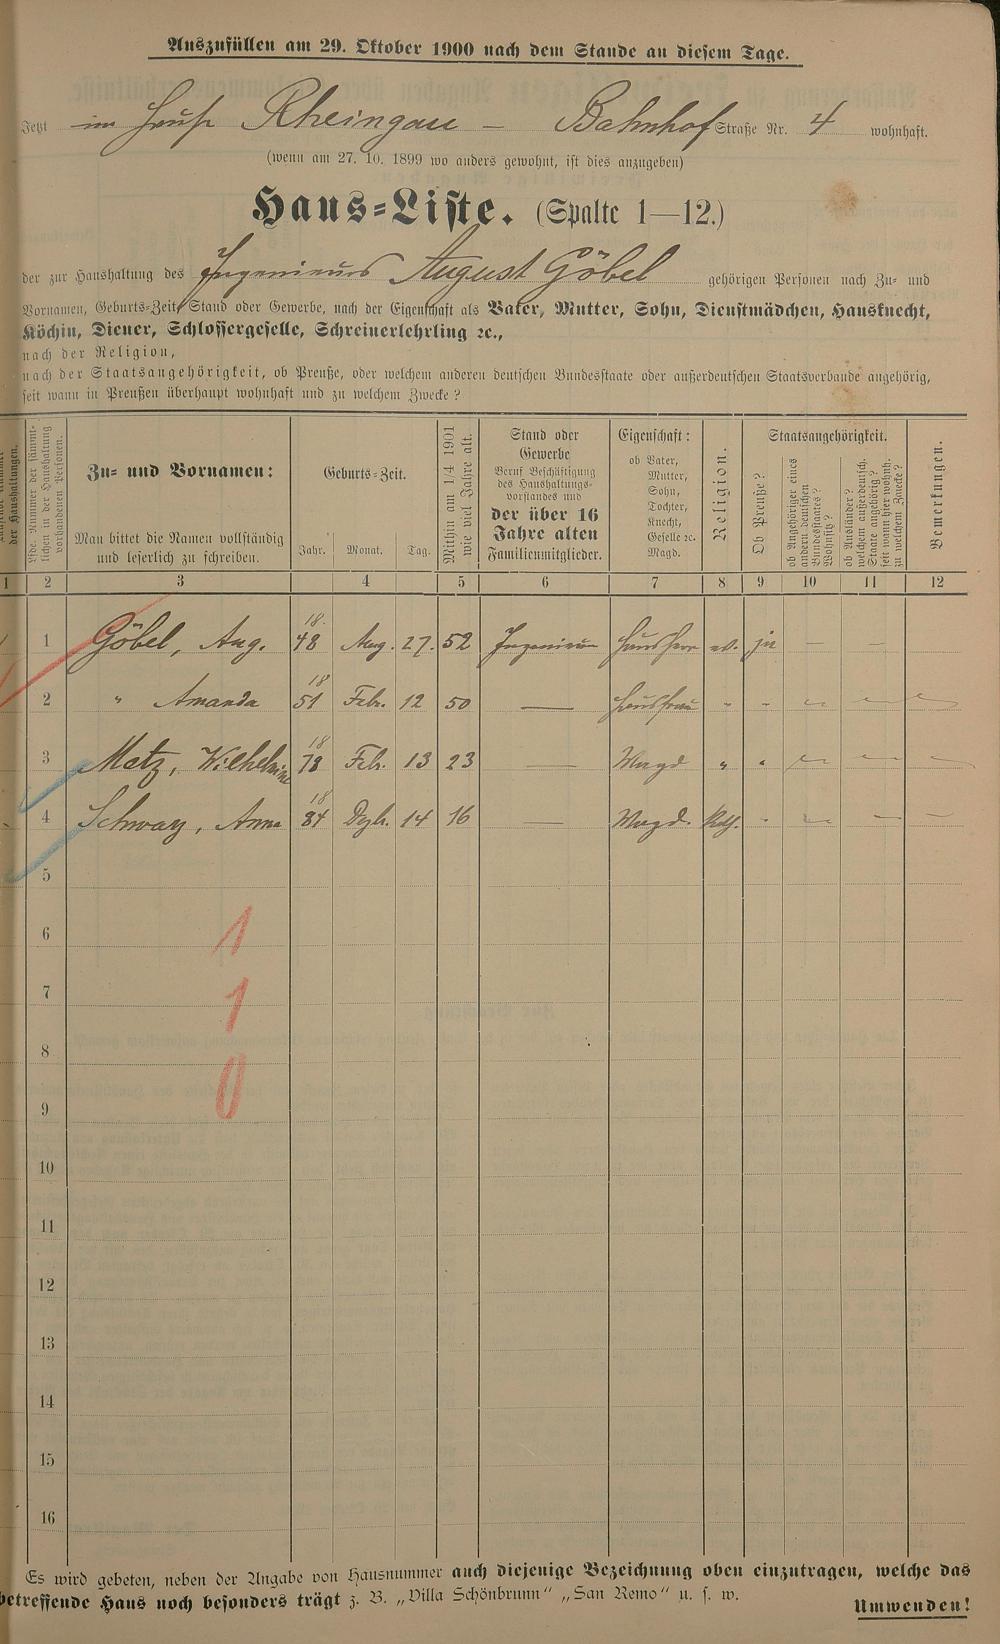 Auszufüllen am 29. Oktober 1900 nach dem Stande an diesem Tage.
Jetzt im Hause Rheingau – Bahnhof Straße Nr. 4 wohnhaft.
(wenn am 27. 10. 1899 wo anders gewohnt, ist dies anzugeben)
Haus-Liste. (Spalte 1—12.)
der zur Haushaltung des Ingenieurs August Göbel gehörigen Personen nach Zu- und
Vornamen, Geburts-Zeit, Stand oder Gewerbe, nach der Eigenschaft als Vater, Mutter, Sohn, Dienstmädchen, Hausknecht,
Köchin, Diener, Schlossergeselle, Schreinerlehrling ꝛc.,
nach der Religion,
nach der Staatsangehörigkeit, ob Preuße, oder welchem anderen deutschen Bundesstaate oder außerdeutschen Staatsverbande angehörig,
seit wann in Preußen überhaupt wohnhaft und zu welchem Zwecke?
der Haushaltungen.
Lfde. Nummer der sämmt-
lichen in der Haushaltung
vorhandenen Personen.
Zu- und Vornamen:
Man bittet die Namen vollständig
und leserlich zu schreiben.
Geburts-Zeit.
Jahr. Monat. Tag.
Mithin am 1/4 1901
wie viel Jahre alt.
Stand oder
Gewerbe
Beruf Beschäftigung
des Haushaltungs-
vorstandes und
der über 16
Jahre alten
Familienmitglieder.
Eigenschaft:
ob Vater,
Mutter,
Sohn,
Tochter,
Knecht,
Geselle ꝛc.
Magd.
Religion.
Staatsangehörigkeit.
Ob Preuße?
ob Angehöriger eines
andern deutschen
Bundesstaates?
Wohnsitz?
ob Ausländer?
welchem außerdeutsch.
Staate angehörig?
seit wann hier wohnh.
zu welchem Zwecke?
Bemerkungen.
1 2 3 4 5 6 7 8 9 10 11 12
1 Göbel, Aug. 18.48 Aug. 27. 52 Ingenieur Hausherr ev. ja — —
2 " Amanda 18 51 Febr. 12 50 — Hausfrau " "
3 Metz, Wilhelmine 18 78 Febr. 13 23 — Magd " "
4 Schwarz, Anna 18 84 Dezb. 14 16 — Magd. Kth. "
5
6
1
7
1
8
0
9
10
11
12
13
14
15
16
Es wird gebeten, neben der Angabe von Hausnummer auch diejenige Bezeichnung oben einzutragen, welche das
betreffende Haus noch besonders trägt z. B. „Villa Schönbrunn“ „San Remo“ u. s. w.
Umwenden!